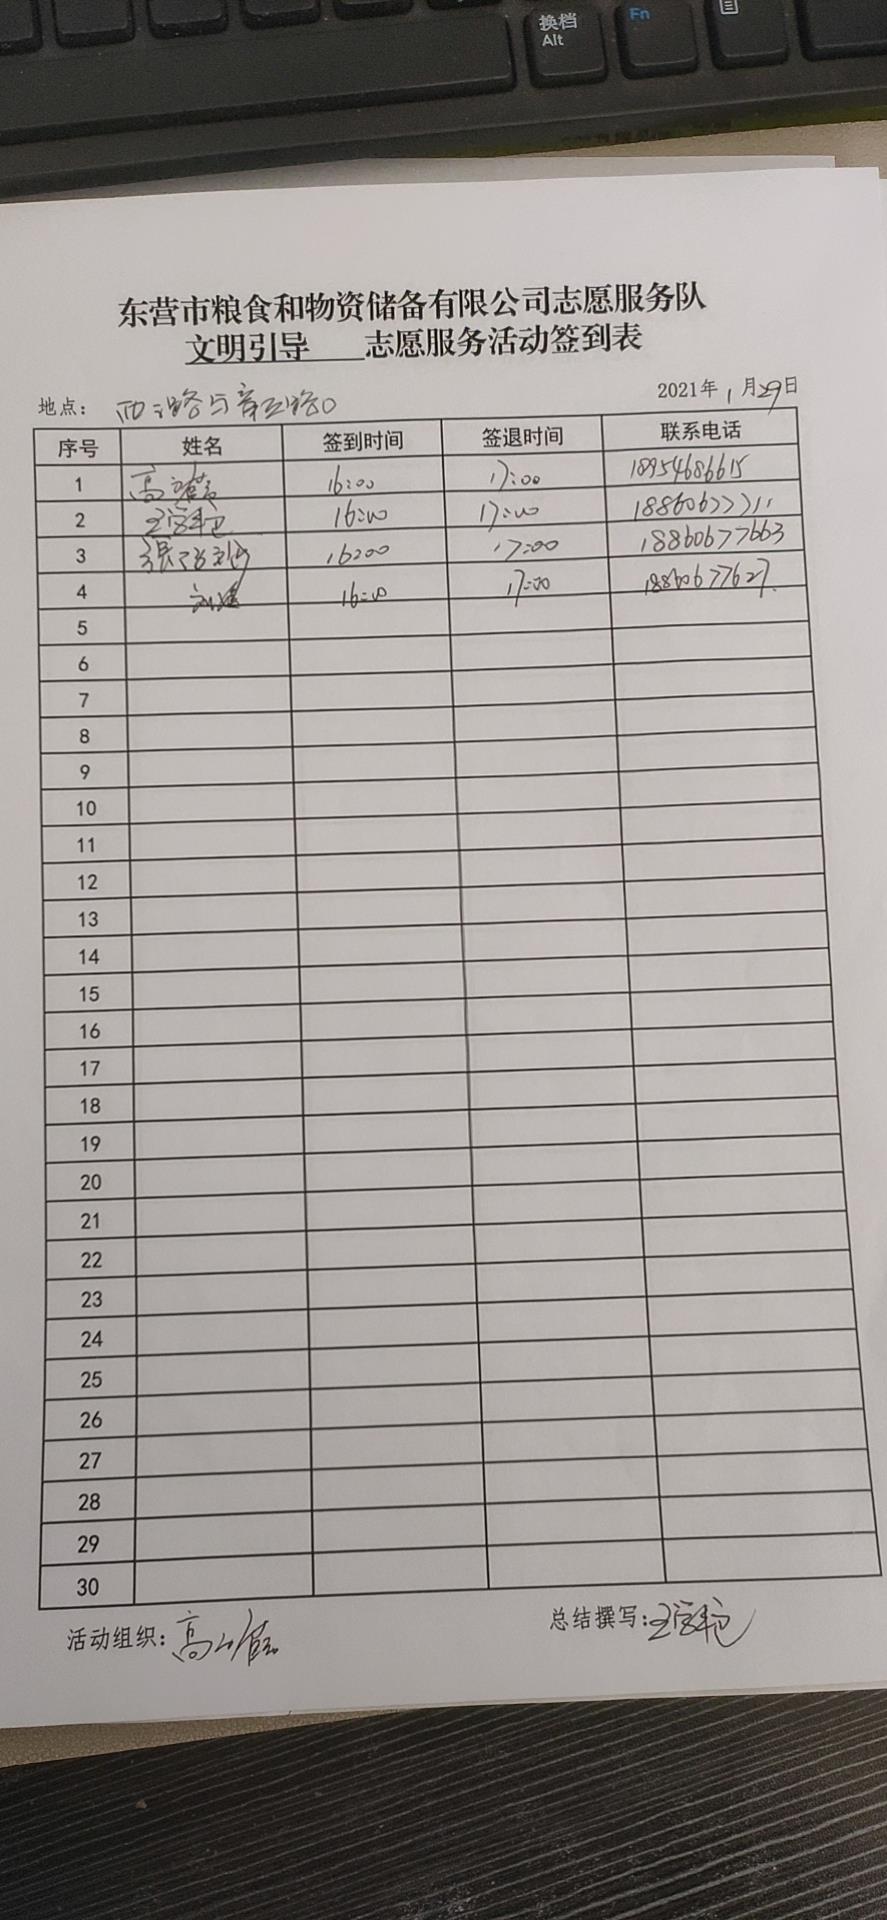 换档
Alt
Fn
东营市粮食和物资储备有限公司志愿服务队
文明引导 志愿服务活动签到表
地点： 西 路与 路口 2021年1月29日
序号 姓名 签到时间 签退时间 联系电话
1 高 16:00 17:00 18954686615
2 王 16:00 17:00 18860677711
3 张 16:00 17:00 18860677663
4 刘建 16:00 17:00 18860677627
5
6
7
8
9
10
11
12
13
14
15
16
17
18
19
20
21
22
23
24
25
26
27
28
29
30
活动组织：高 总结撰写：王